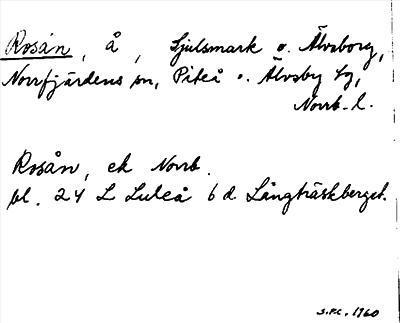 Rosån, å, Sjulsmark o. Älvsborg,
Norrfjärdens sn, Piteå o. Älvsby tg,
Norrb. l.
Rosån, ek Norrb.
bl. 24 L Luleå 6 d Långträskberget.
1960